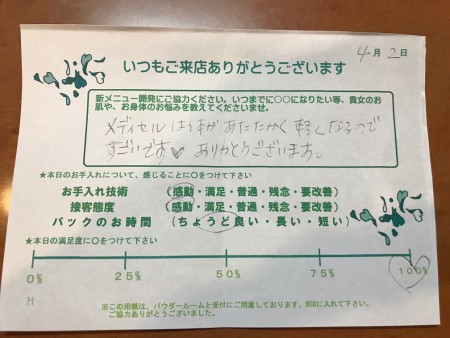 4月2日
いつもご来店ありがとうございます
新メニュー開発にご協力ください。いつまでに○○になりたい等、貴女のお
肌や、お身体のお悩みを教えてくださいませ。
メディセルは体があたたかく軽くなるので
すごいです♥ ありがとうございます。
★本日のお手入れについて、感じることに○をつけて下さい
お手入れ技術 (感動・満足・普通・残念・要改善)
接客態度 (感動・満足・普通・残念・要改善)
パックのお時間 (ちょうど良い・長い・短い)
★本日の満足度に○をつけて下さい
0% 25% 50% 75% 100%
H
※この用紙は、パウダールームと受付にご用意しております。BOXに入れて下さい。
ご協力ありがとうございました。